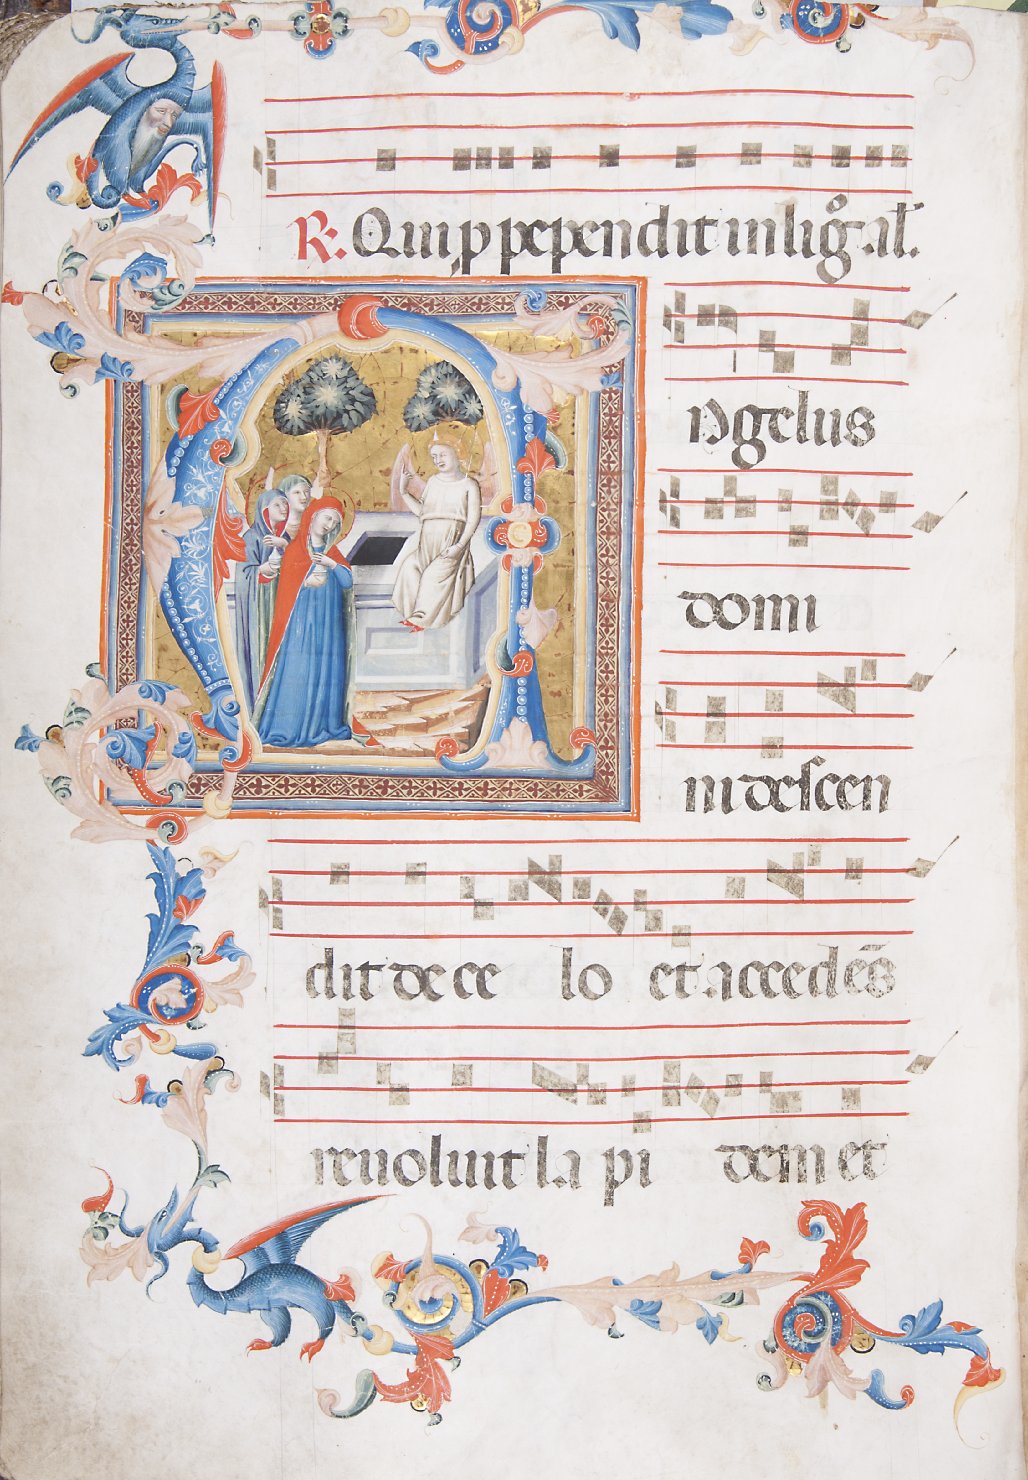 R. Qui p̱pependit inligͦ. al̄l.
Angelus
domi
ni descen
dit de ce lo et accedēs
reuoluit lapi dem et